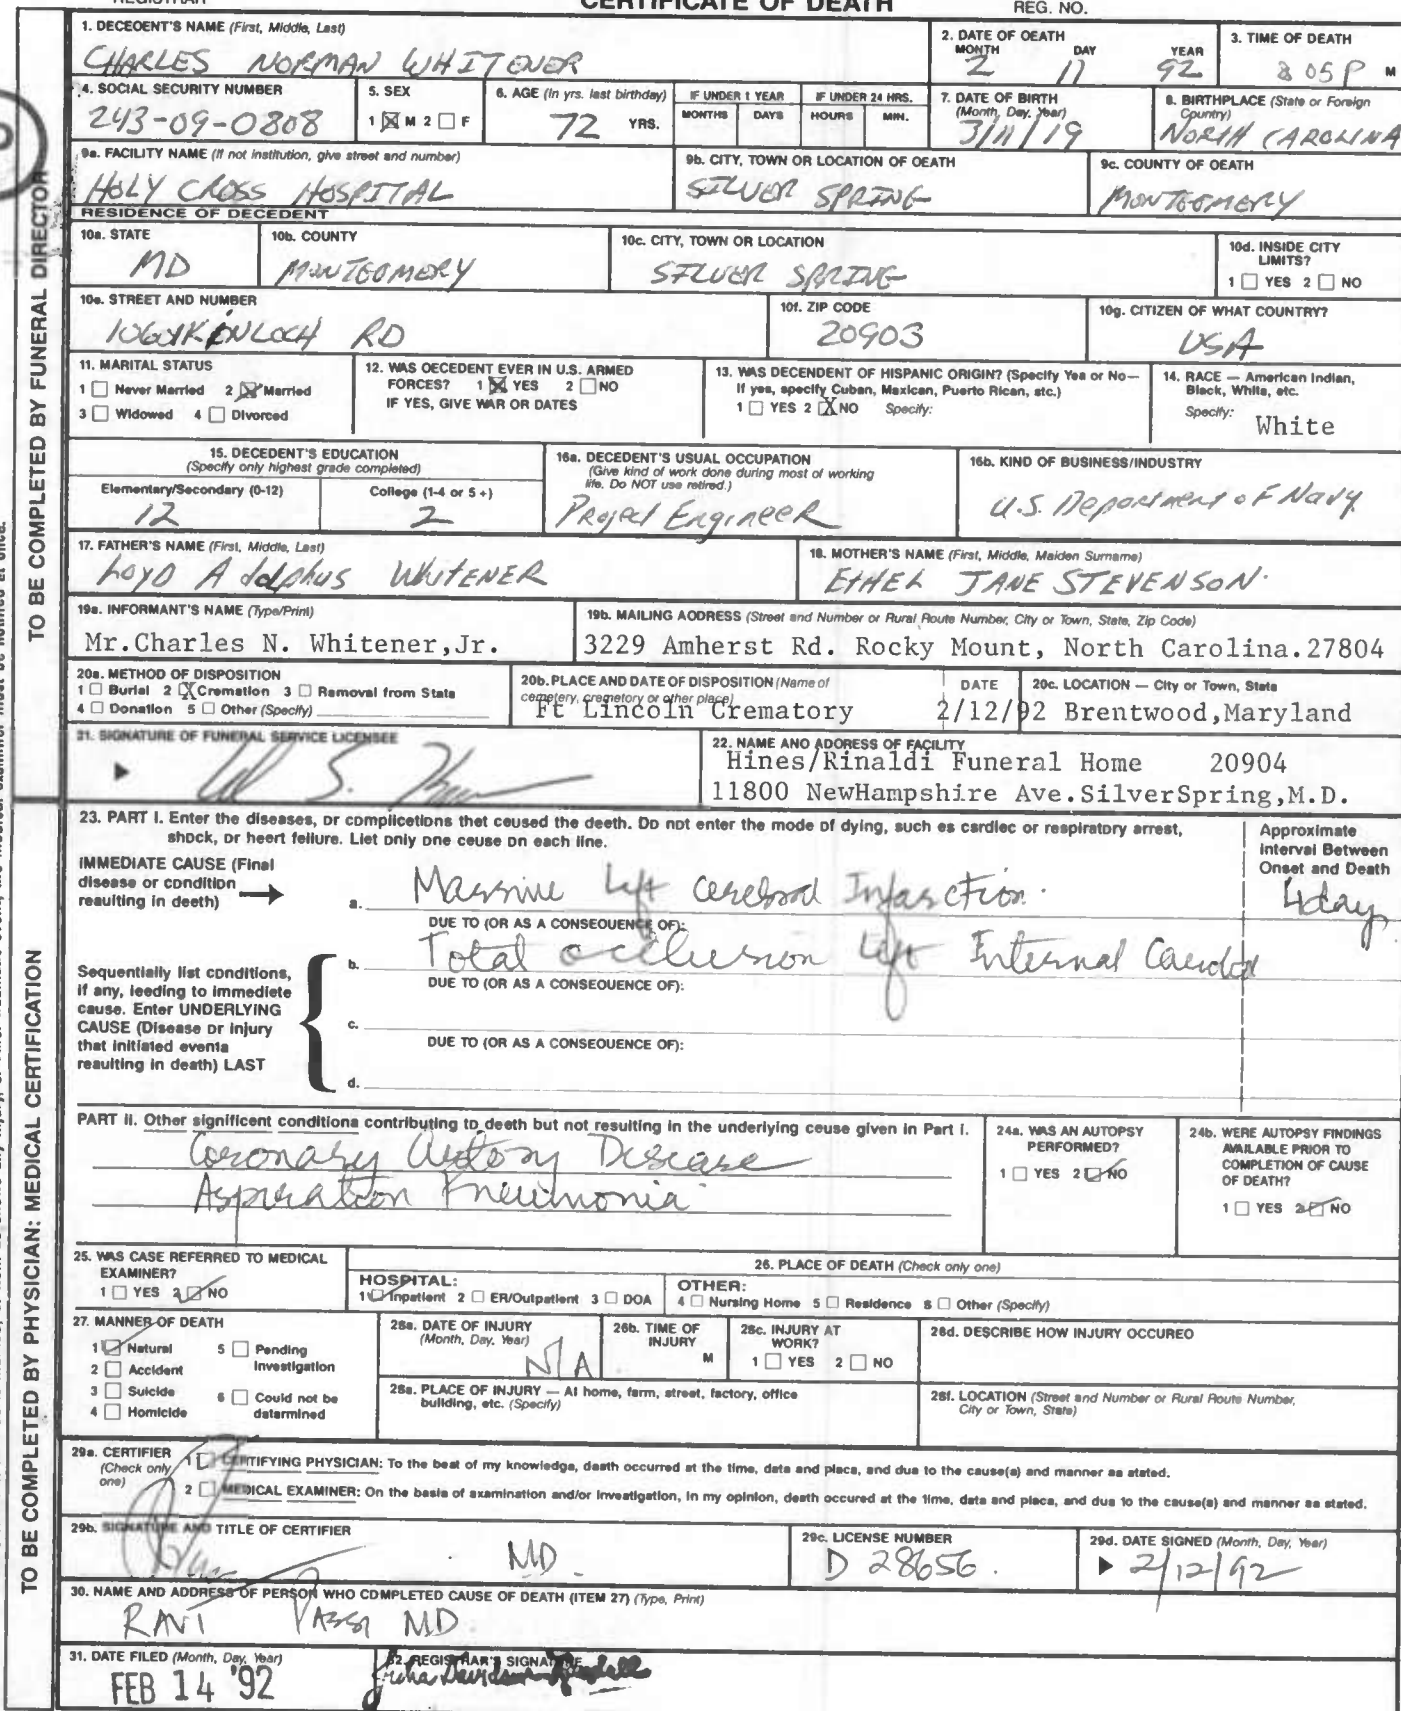 REGISTRAR CERTIFICATE OF DEATH REG. NO.
1. DECEDENT'S NAME (First, Middle, Last)
CHARLES NORMAN WHITENER
2. DATE OF DEATH
MONTH DAY YEAR
2 11 92
3. TIME OF DEATH
8 05 P M
4. SOCIAL SECURITY NUMBER
243-09-0808
5. SEX
1 ☒ M 2 ☐ F
6. AGE (In yrs. last birthday)
72 YRS.
IF UNDER 1 YEAR
MONTHS DAYS
IF UNDER 24 HRS.
HOURS MIN.
7. DATE OF BIRTH
(Month, Day, Year)
3/11/19
8. BIRTHPLACE (State or Foreign
Country)
NORTH CAROLINA
9a. FACILITY NAME (If not institution, give street and number)
HOLY CROSS HOSPITAL
9b. CITY, TOWN OR LOCATION OF DEATH
SILVER SPRING
9c. COUNTY OF DEATH
MONTGOMERY
RESIDENCE OF DECEDENT
10a. STATE
MD
10b. COUNTY
MONTGOMERY
10c. CITY, TOWN OR LOCATION
SILVER SPRING
10d. INSIDE CITY
LIMITS?
1 ☐ YES 2 ☐ NO
10e. STREET AND NUMBER
KINLOCH RD
10f. ZIP CODE
20903
10g. CITIZEN OF WHAT COUNTRY?
USA
11. MARITAL STATUS
1 ☐ Never Married 2 ☒ Married
3 ☐ Widowed 4 ☐ Divorced
12. WAS DECEDENT EVER IN U.S. ARMED
FORCES? 1 ☒ YES 2 ☐ NO
IF YES, GIVE WAR OR DATES
13. WAS DECENDENT OF HISPANIC ORIGIN? (Specify Yes or No—
If yes, specify Cuban, Mexican, Puerto Rican, etc.)
1 ☐ YES 2 ☒ NO Specify:
14. RACE — American Indian,
Black, White, etc.
Specify: White
15. DECEDENT'S EDUCATION
(Specify only highest grade completed)
Elementary/Secondary (0-12) College (1-4 or 5+)
12 2
16a. DECEDENT'S USUAL OCCUPATION
(Give kind of work done during most of working
life. Do NOT use retired.)
Project Engineer
16b. KIND OF BUSINESS/INDUSTRY
U.S. Department of Navy
17. FATHER'S NAME (First, Middle, Last)
LOYD Adolphus WhiTENER
18. MOTHER'S NAME (First, Middle, Maiden Surname)
ETHEL JANE STEVENSON
19a. INFORMANT'S NAME (Type/Print)
Mr.Charles N. Whitener,Jr.
19b. MAILING ADDRESS (Street and Number or Rural Route Number, City or Town, State, Zip Code)
3229 Amherst Rd. Rocky Mount, North Carolina.27804
20a. METHOD OF DISPOSITION
1 ☐ Burial 2 ☒ Cremation 3 ☐ Removal from State
4 ☐ Donation 5 ☐ Other (Specify)
20b. PLACE AND DATE OF DISPOSITION (Name of
cemetery, crematory or other place)
Ft Lincoln Crematory
DATE
2/12/92
20c. LOCATION — City or Town, State
Brentwood,Maryland
21. SIGNATURE OF FUNERAL SERVICE LICENSEE
22. NAME AND ADDRESS OF FACILITY
Hines/Rinaldi Funeral Home 20904
11800 NewHampshire Ave.SilverSpring,M.D.
23. PART I. Enter the diseases, or complications that caused the death. Do not enter the mode of dying, such as cardiac or respiratory arrest,
shock, or heart failure. List only one cause on each line.
Approximate
Interval Between
Onset and Death
IMMEDIATE CAUSE (Final
disease or condition
resulting in death)
a. Massive Left Cerebral Infarction. 4 day
DUE TO (OR AS A CONSEQUENCE OF):
b. Total occlusion Left Internal Carotid
DUE TO (OR AS A CONSEQUENCE OF):
Sequentially list conditions,
if any, leading to immediate
cause. Enter UNDERLYING
CAUSE (Disease or injury
that initiated events
resulting in death) LAST
c.
DUE TO (OR AS A CONSEQUENCE OF):
d.
PART II. Other significant conditions contributing to death but not resulting in the underlying cause given in Part I.
Coronary Artery Disease
Aspiration Pneumonia
24a. WAS AN AUTOPSY
PERFORMED?
1 ☐ YES 2 ☑ NO
24b. WERE AUTOPSY FINDINGS
AVAILABLE PRIOR TO
COMPLETION OF CAUSE
OF DEATH?
1 ☐ YES 2 ☑ NO
25. WAS CASE REFERRED TO MEDICAL
EXAMINER?
1 ☐ YES 2 ☑ NO
26. PLACE OF DEATH (Check only one)
HOSPITAL:
1 ☑ Inpatient 2 ☐ ER/Outpatient 3 ☐ DOA
OTHER:
4 ☐ Nursing Home 5 ☐ Residence 6 ☐ Other (Specify)
27. MANNER OF DEATH
1 ☑ Natural 5 ☐ Pending
2 ☐ Accident Investigation
3 ☐ Suicide 6 ☐ Could not be
4 ☐ Homicide determined
28a. DATE OF INJURY
(Month, Day, Year)
N/A
28b. TIME OF
INJURY
M
28c. INJURY AT
WORK?
1 ☐ YES 2 ☐ NO
28d. DESCRIBE HOW INJURY OCCURED
28e. PLACE OF INJURY — At home, farm, street, factory, office
building, etc. (Specify)
28f. LOCATION (Street and Number or Rural Route Number,
City or Town, State)
29a. CERTIFIER
(Check only
one)
1 ☑ CERTIFYING PHYSICIAN: To the best of my knowledge, death occurred at the time, date and place, and due to the cause(s) and manner as stated.
2 ☐ MEDICAL EXAMINER: On the basis of examination and/or investigation, in my opinion, death occured at the time, date and place, and due to the cause(s) and manner as stated.
29b. SIGNATURE AND TITLE OF CERTIFIER
MD
29c. LICENSE NUMBER
D 28656.
29d. DATE SIGNED (Month, Day, Year)
2/12/92
30. NAME AND ADDRESS OF PERSON WHO COMPLETED CAUSE OF DEATH (ITEM 27) (Type, Print)
RAVI PASSI MD
31. DATE FILED (Month, Day, Year)
FEB 14 '92
32. REGISTRAR'S SIGNATURE
TO BE COMPLETED BY FUNERAL DIRECTOR
TO BE COMPLETED BY PHYSICIAN: MEDICAL CERTIFICATION